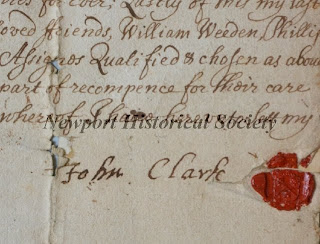 for ever; Lastly of this my last
loved friends, William Weeden, Phillip
Assignes Qualified & chosen as about
part of recompence for their care
whereof I have hereunto set my
Newport Historical Society
John Clark